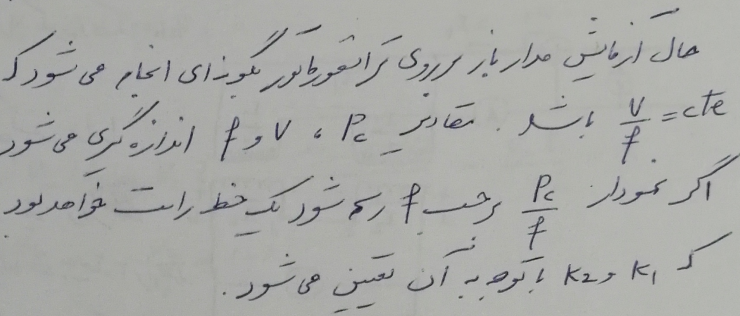 حال آزمایش مدار باز بر روی ترانسفورماتور بگونه‌ای انجام می شود که
V/f = cte باشد. مقادیر Pc ، V و f اندازه گیری می شود
اگر نمودار Pc/f برحسب f رسم شود یک خط راست خواهد بود
که k1 و k2 با توجه به آن تعیین می شود.